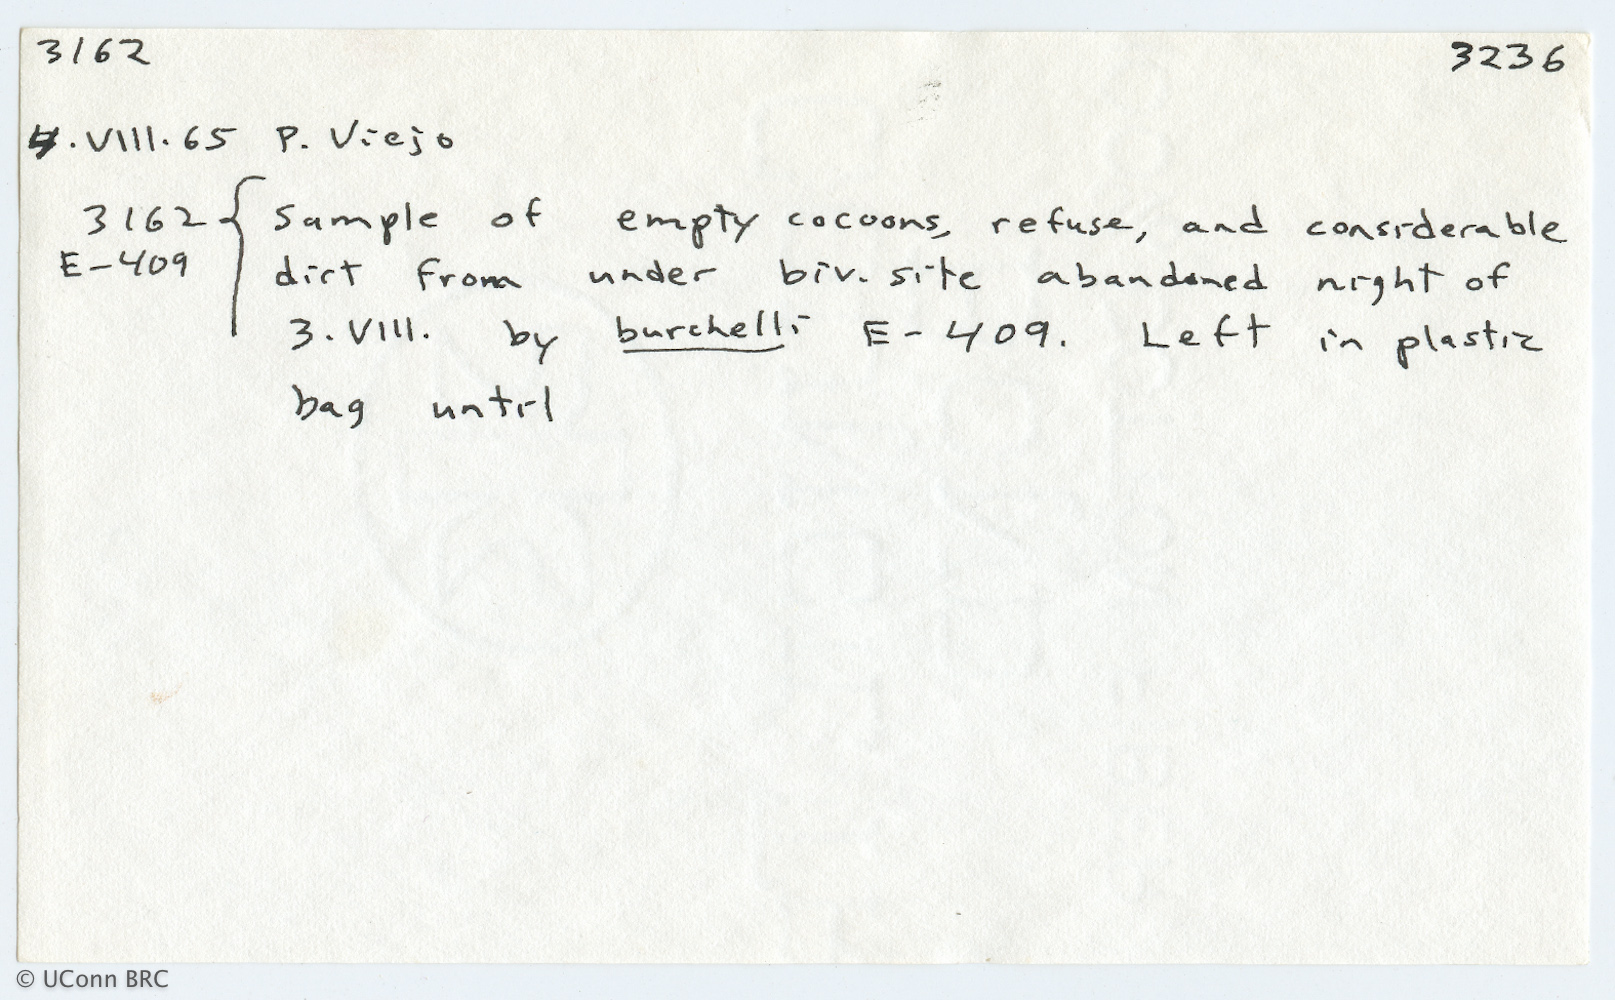 3162 3236
4.VIII.65 P. Viejo
3162 { Sample of empty cocoons, refuse, and considerable
E-409 dirt from under biv. site abandoned night of
3.VIII. by burchelli E-409. Left in plastic
bag until
© UConn BRC